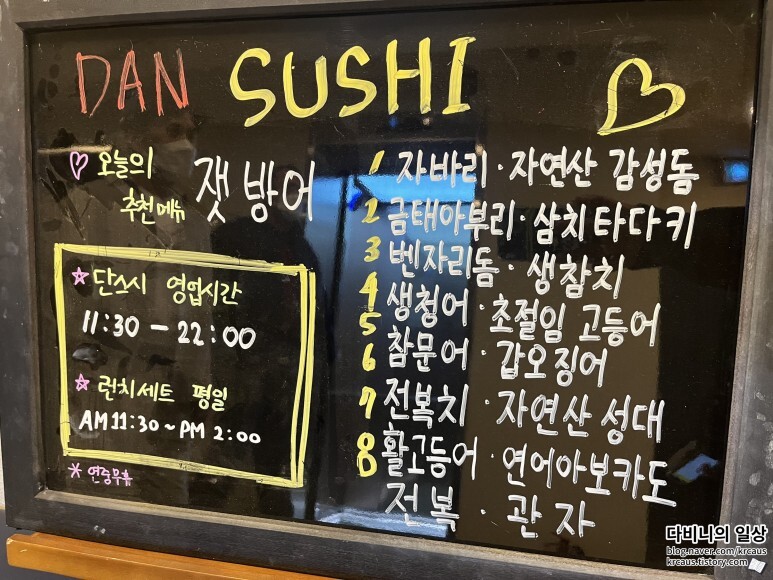 DAN SUSHI
♡ 오늘의
추천메뉴 잿방어
☆ 단스시 영업시간
11:30 - 22:00
☆ 런치세트 평일
AM 11:30 ~ PM 2:00
* 연중무휴
1 자바리 · 자연산 감성돔
2 금태아부리 · 삼치타다키
3 벤자리돔 · 생참치
4 생청어 · 초절임 고등어
5
6 참문어 · 갑오징어
7 전복치 · 자연산 성대
8 활고등어 · 연어아보카도
전복 · 관자
다비니의 일상
blog.naver.com/krcaus
krcaus.tistory.com